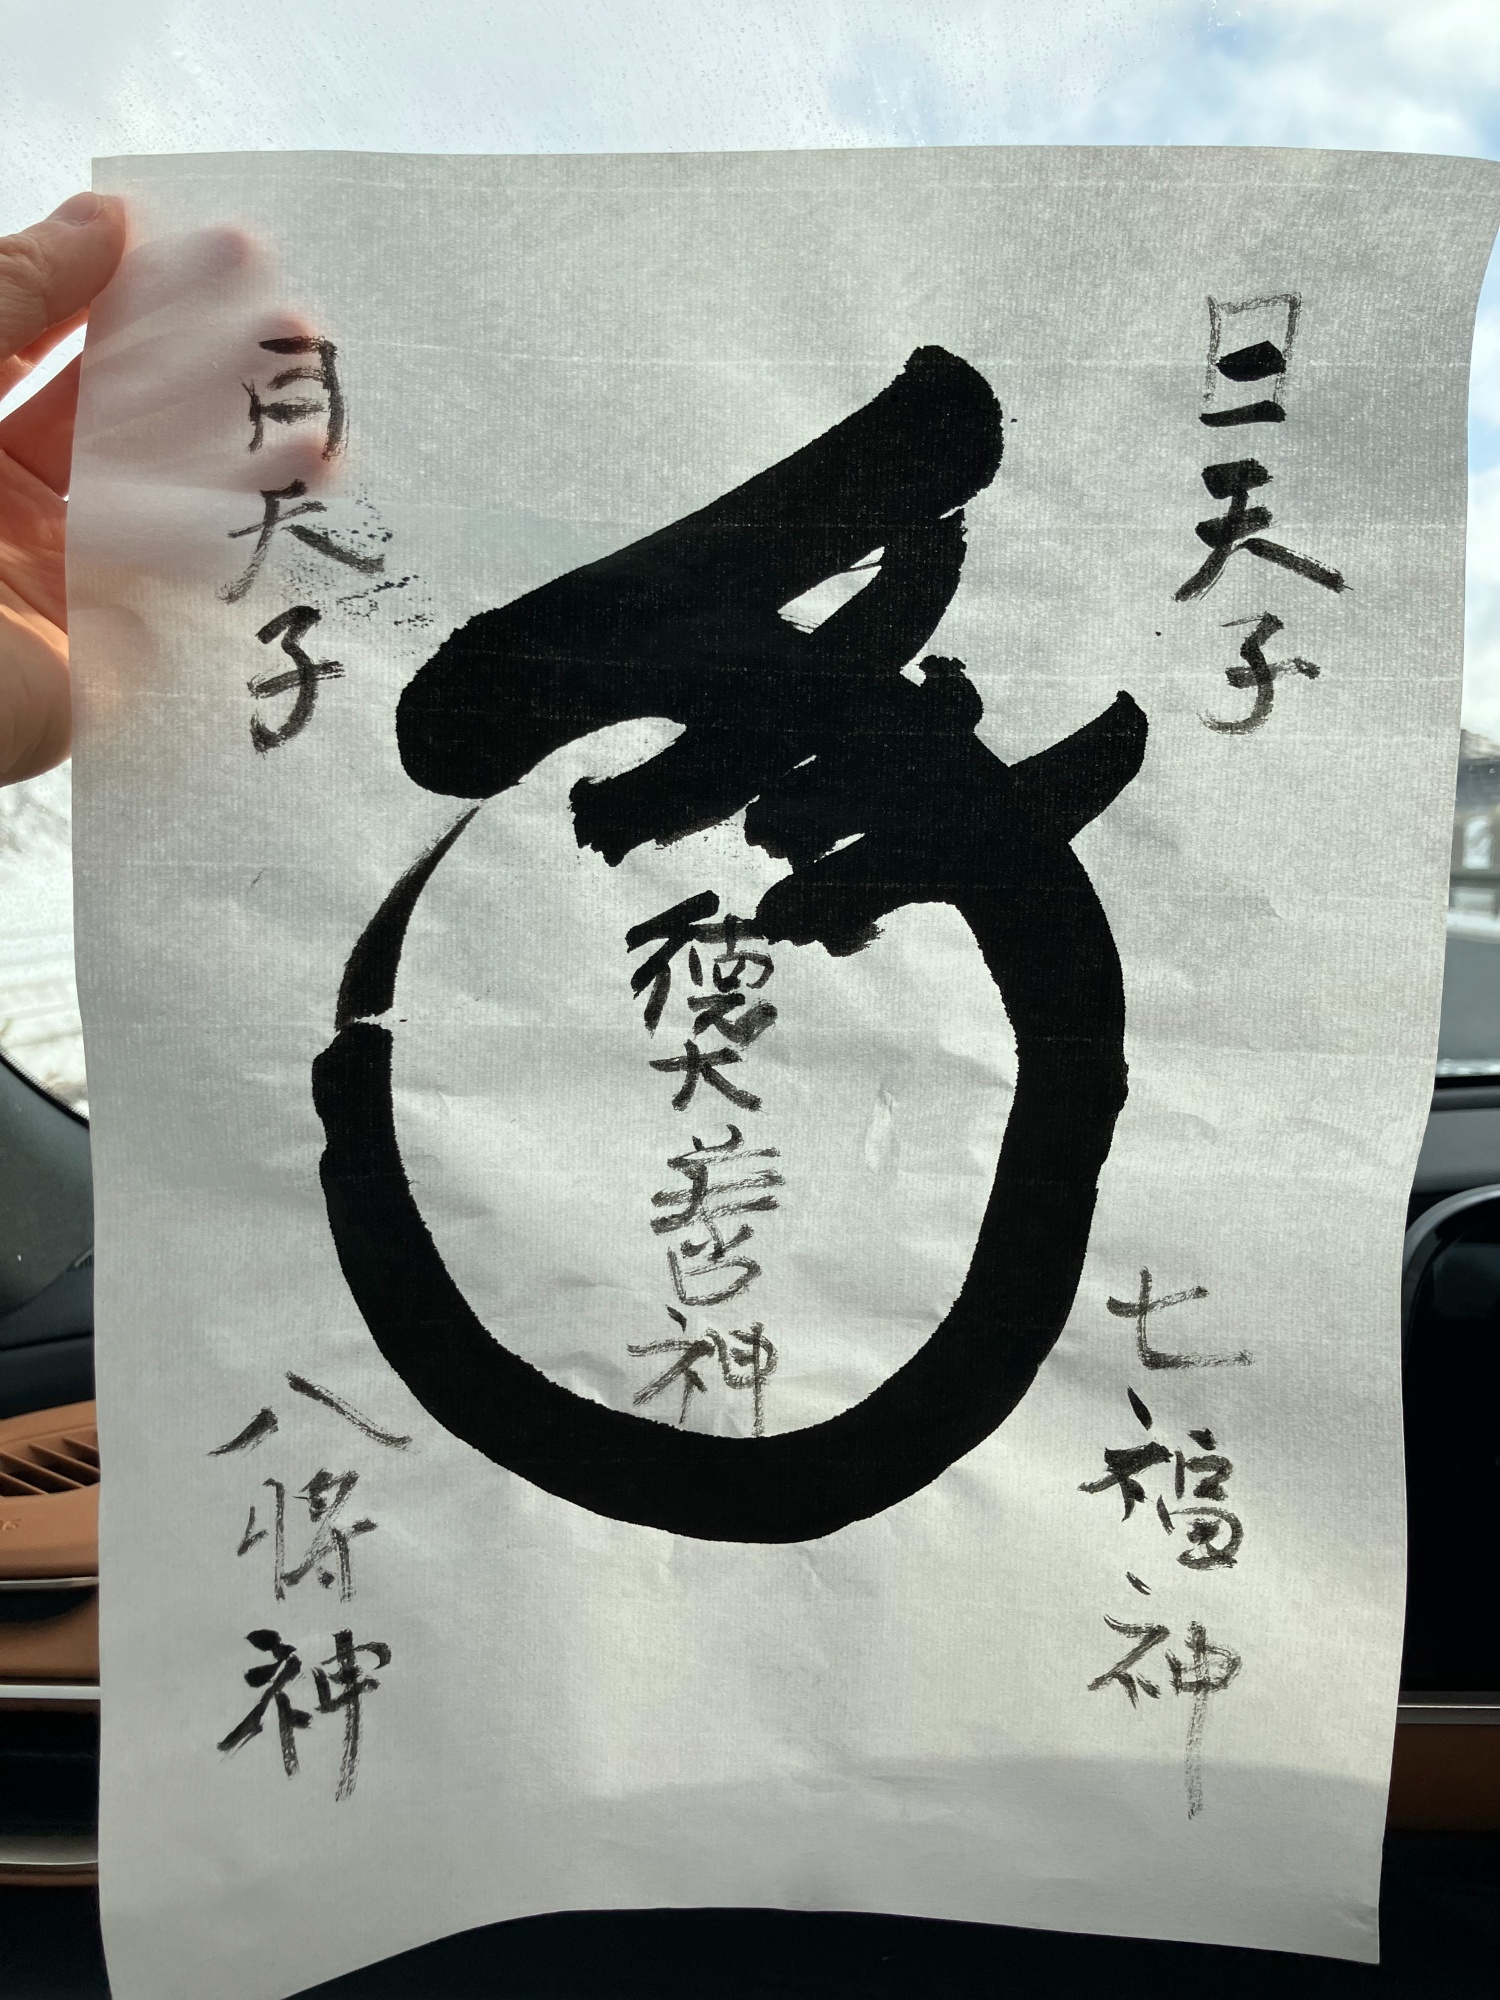 日天子
月天子
徳大善神
七福神
八将神